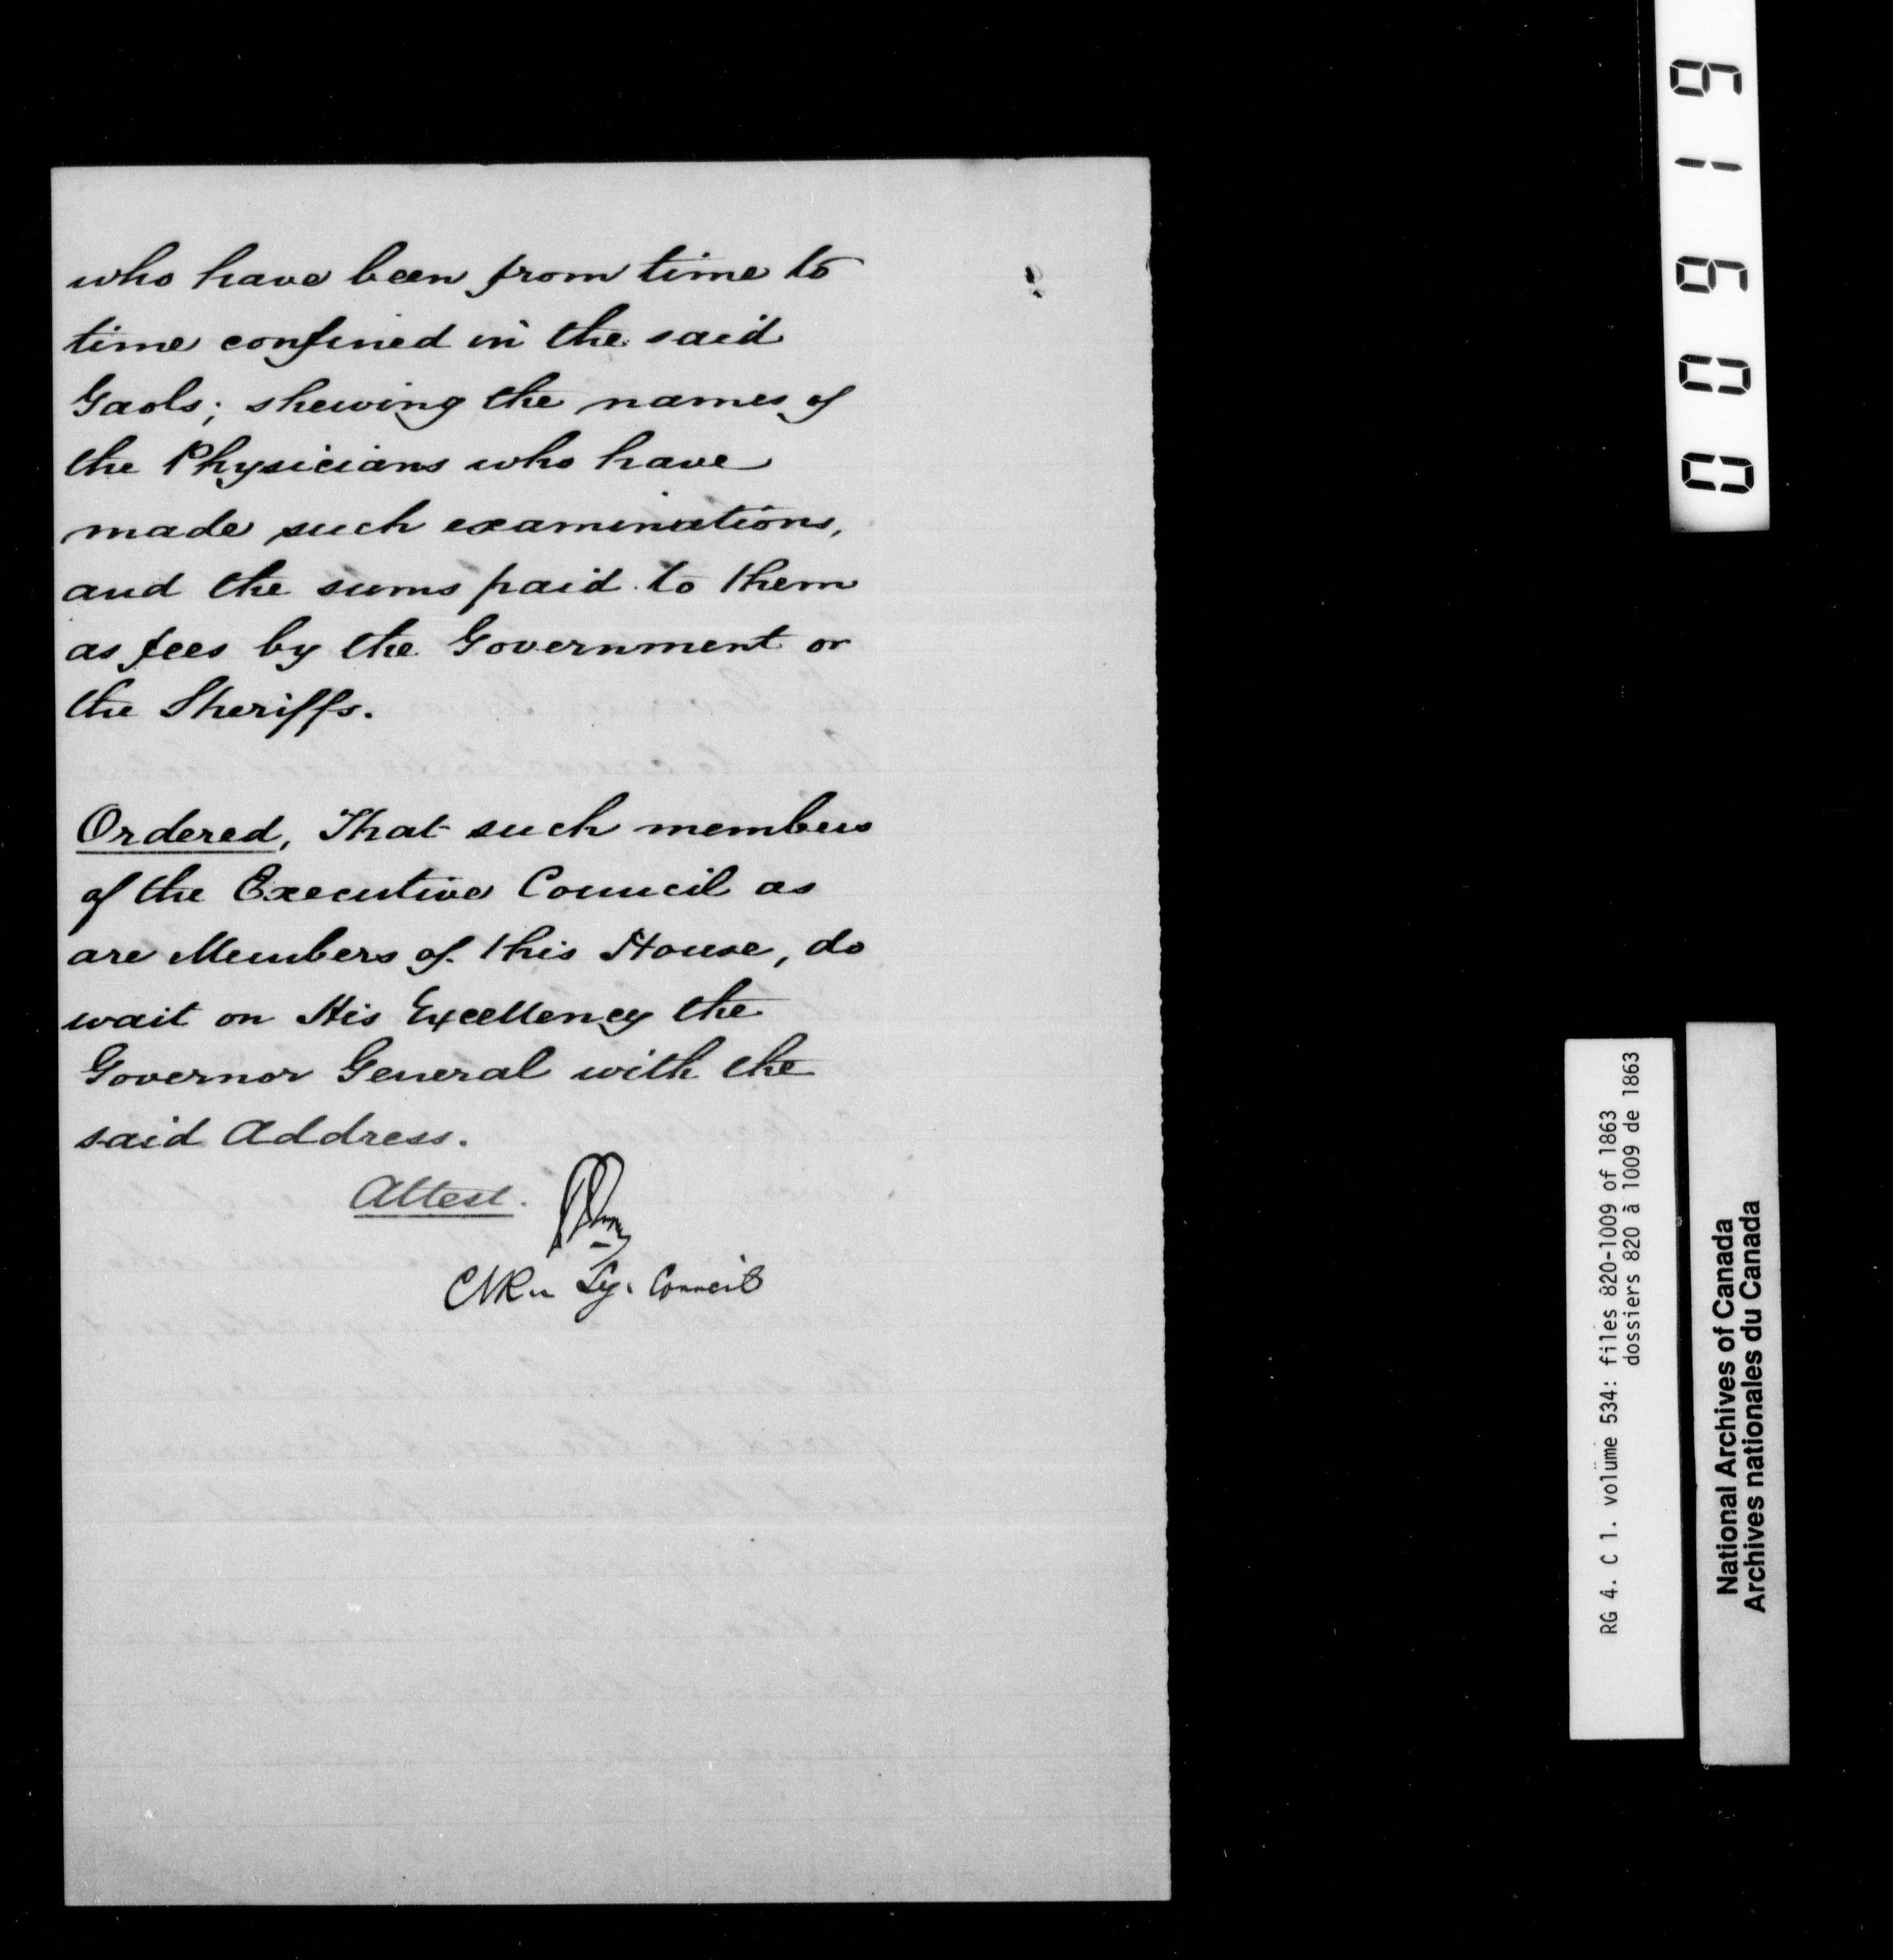 who have been from time to
time confined in the said
Gaols; shewing the names of
the Physicians who have
made such examinations,
and the sums paid to them
as fees by the Government or
the Sheriffs.
Ordered, That such members
of the Executive Council as
are Members of this House, do
wait on His Excellency the
Governor General with the
said Address.
Attest.
Leg. Council
00619
RG 4. C 1. volume 534: files 820-1009 of 1863
dossiers 820 à 1009 de 1863
National Archives of Canada
Archives nationales du Canada